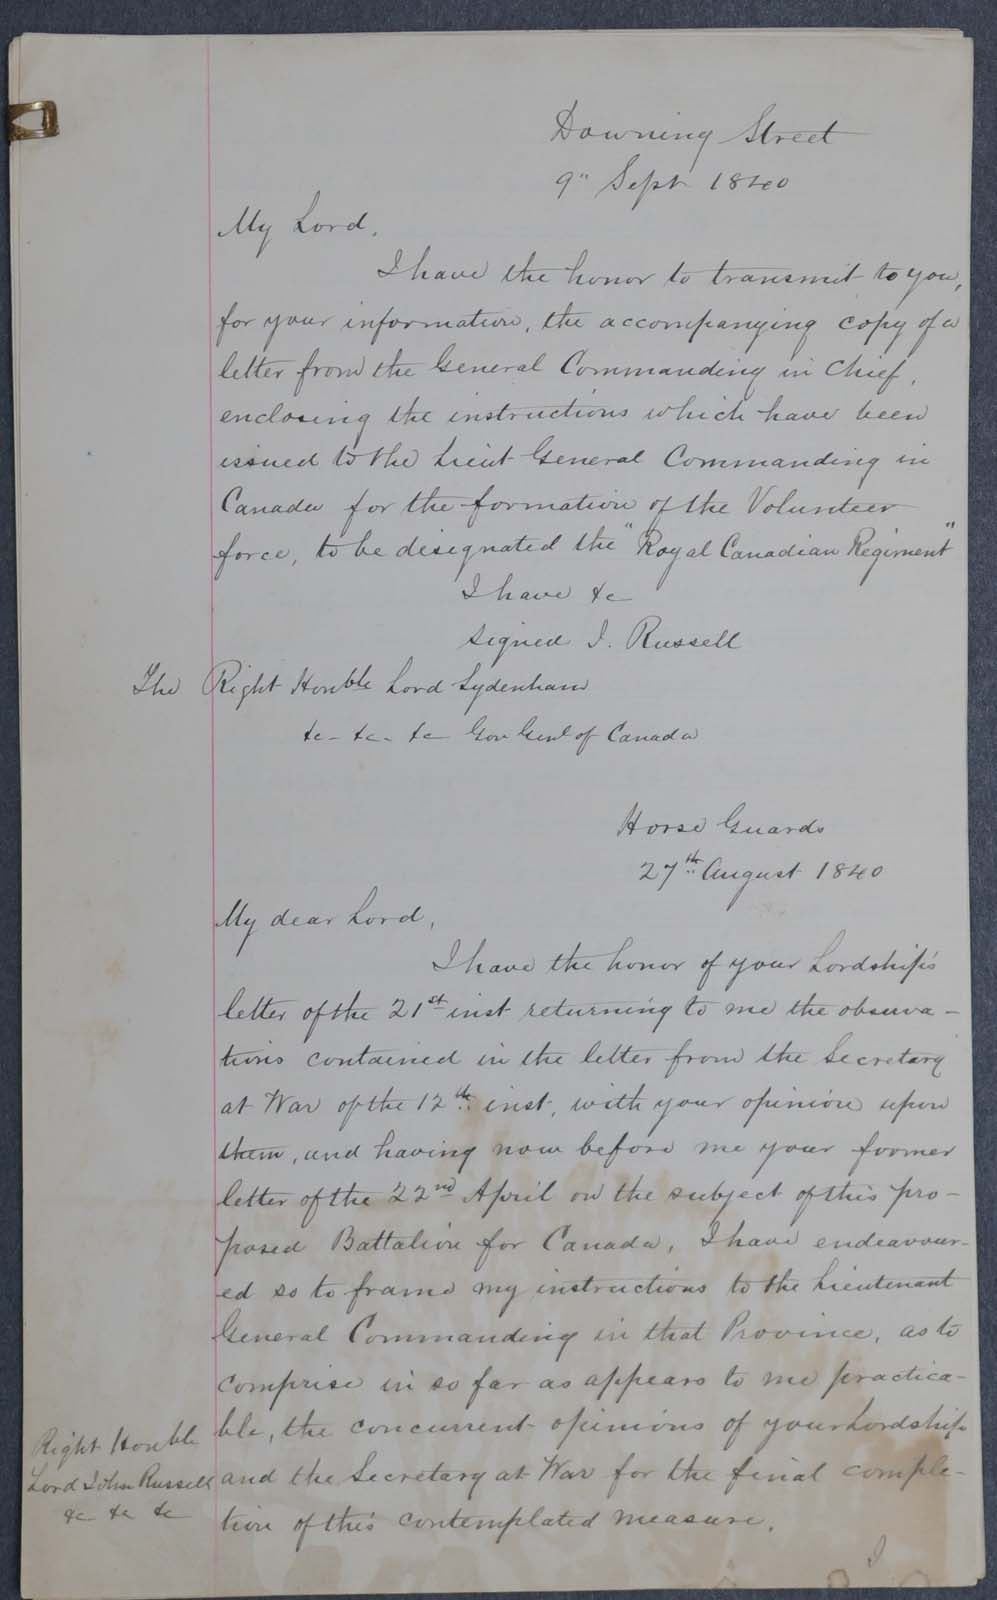 Downing Street
9" Sept 1840
My Lord,
I have the honor to transmit to you,
for your information, the accompanying copy of a
letter from the General Commanding in Chief,
enclosing the instructions which have been
issued to the Lieut General Commanding in
Canada for the formation of the Volunteer
force, to be designated the "Royal Canadian Regiment"
I have &c
signed J. Russell
The Right Honble Lord Sydenham
&c - &c - &c Gov Genl of Canada
Horse Guards
27th August 1840
My dear Lord,
I have the honor of your Lordship's
letter of the 21st inst returning to me the observa-
tions contained in the letter from the Secretary
at War of the 12th inst, with your opinion upon
them, and having now before me your former
letter of the 22nd April on the subject of this pro-
posed Battalion for Canada, I have endeavour-
ed so to frame my instructions to the Lieutenant
General Commanding in that Province, as to
comprise in so far as appears to me practica-
ble, the concurrent opinions of your Lordship
and the Secretary at War for the final comple-
tion of this contemplated measure.
Right Honble
Lord John Russell
&c &c &c
I